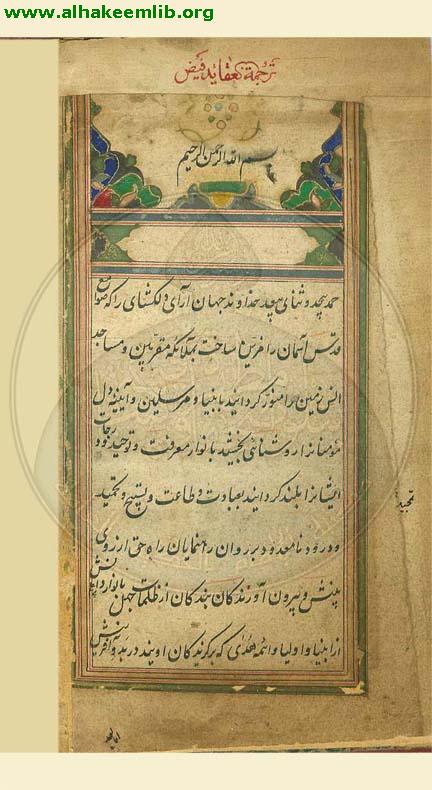 www.alhakeemlib.org
ترجمة عقاید فیض
بسم الله الرحمن الرحیم
حمد بیحد و ثنای بیعد خداوند جهان آرای دلگشای را که صوامع
قدس آسمان را مزین ساخت بملائکه مقربین و مساجد
انس زمین را منور گردانید بانبیا و مرسلین و آیینه دل
مؤمنانرا روشنائی بخشید بانوار معرفت و توحید و درجات
ایشانرا بلند گردانید بعبادت و طاعت و تسبیح و تحمید
تمجید
و درود نامعدود بر روان راهنمایان راه حق از روی
بینش و بیرون آورندگان بندگان از ظلمات جهل بانوار دانش
از انبیا و اولیا و ائمه هدی که برگزیدگان اویند در بدو آفرینش